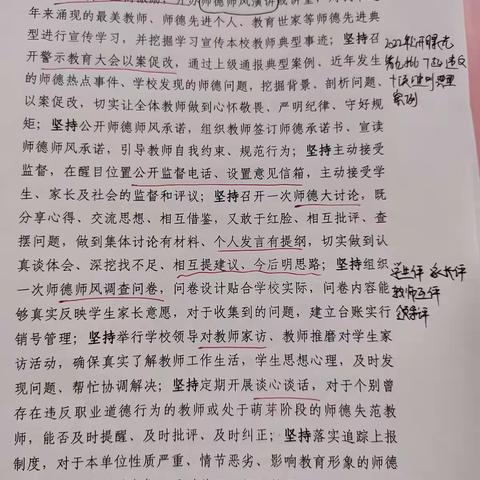 年来涌现的最美教师、师德先进个人、教育世家等师德先进典
型进行宣传学习，并挖掘学习宣传本校教师典型事迹；坚持召
开警示教育大会以案促改，通过上级通报典型案例、近年发生
的师德热点事件、学校发现的师德问题，挖掘背景、剖析问题、
以案促改，切实让全体教师做到心怀敬畏、严明纪律、守好规
矩；坚持公开师德师风承诺，组织教师签订师德承诺书、宣读
师德师风承诺，引导教师自我约束、规范行为；坚持主动接受
监督，在醒目位置公开监督电话、设置意见信箱，主动接受学
生、家长及社会的监督和评议；坚持召开一次师德大讨论，既
分享心得、交流思想、相互借鉴，又敢于红脸、相互批评、查
摆问题，做到集体讨论有材料、个人发言有提纲，切实做到认
真谈体会、深挖找不足、相互提建议、今后明思路；坚持组织
一次师德师风调查问卷，问卷设计贴合学校实际，问卷内容能
够真实反映学生家长意愿，对于收集到的问题，建立台账实行
销号管理；坚持举行学校领导对教师家访、教师推磨对学生家
访活动，确保真实了解教师工作生活，学生思想心理，及时发
现问题、帮忙协调解决；坚持定期开展谈心谈话，对于个别曾
存在违反职业道德行为的教师或处于萌芽阶段的师德失范教
师，能否及时提醒、及时批评、及时纠正；坚持落实追踪上报
制度，对于本单位性质严重、情节恶劣、影响教育形象的师德
案例
学生评 家长评
教师互评